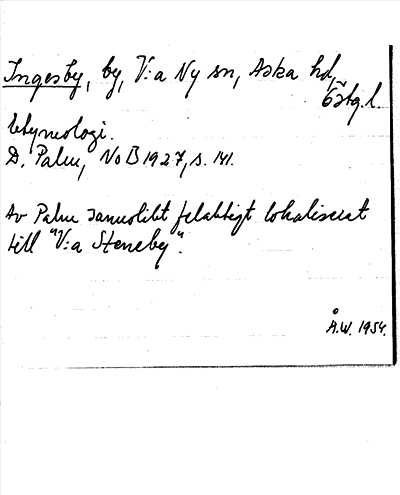 Ingesby, by, V:a Ny sn, Aska hd,
Östg.l.
Etymologi.
D. Palm, NoB 1927, s. 141.
Av Palm sannolikt felaktigt lokaliserat
till "V:a Steneby".
Å.W. 1954.